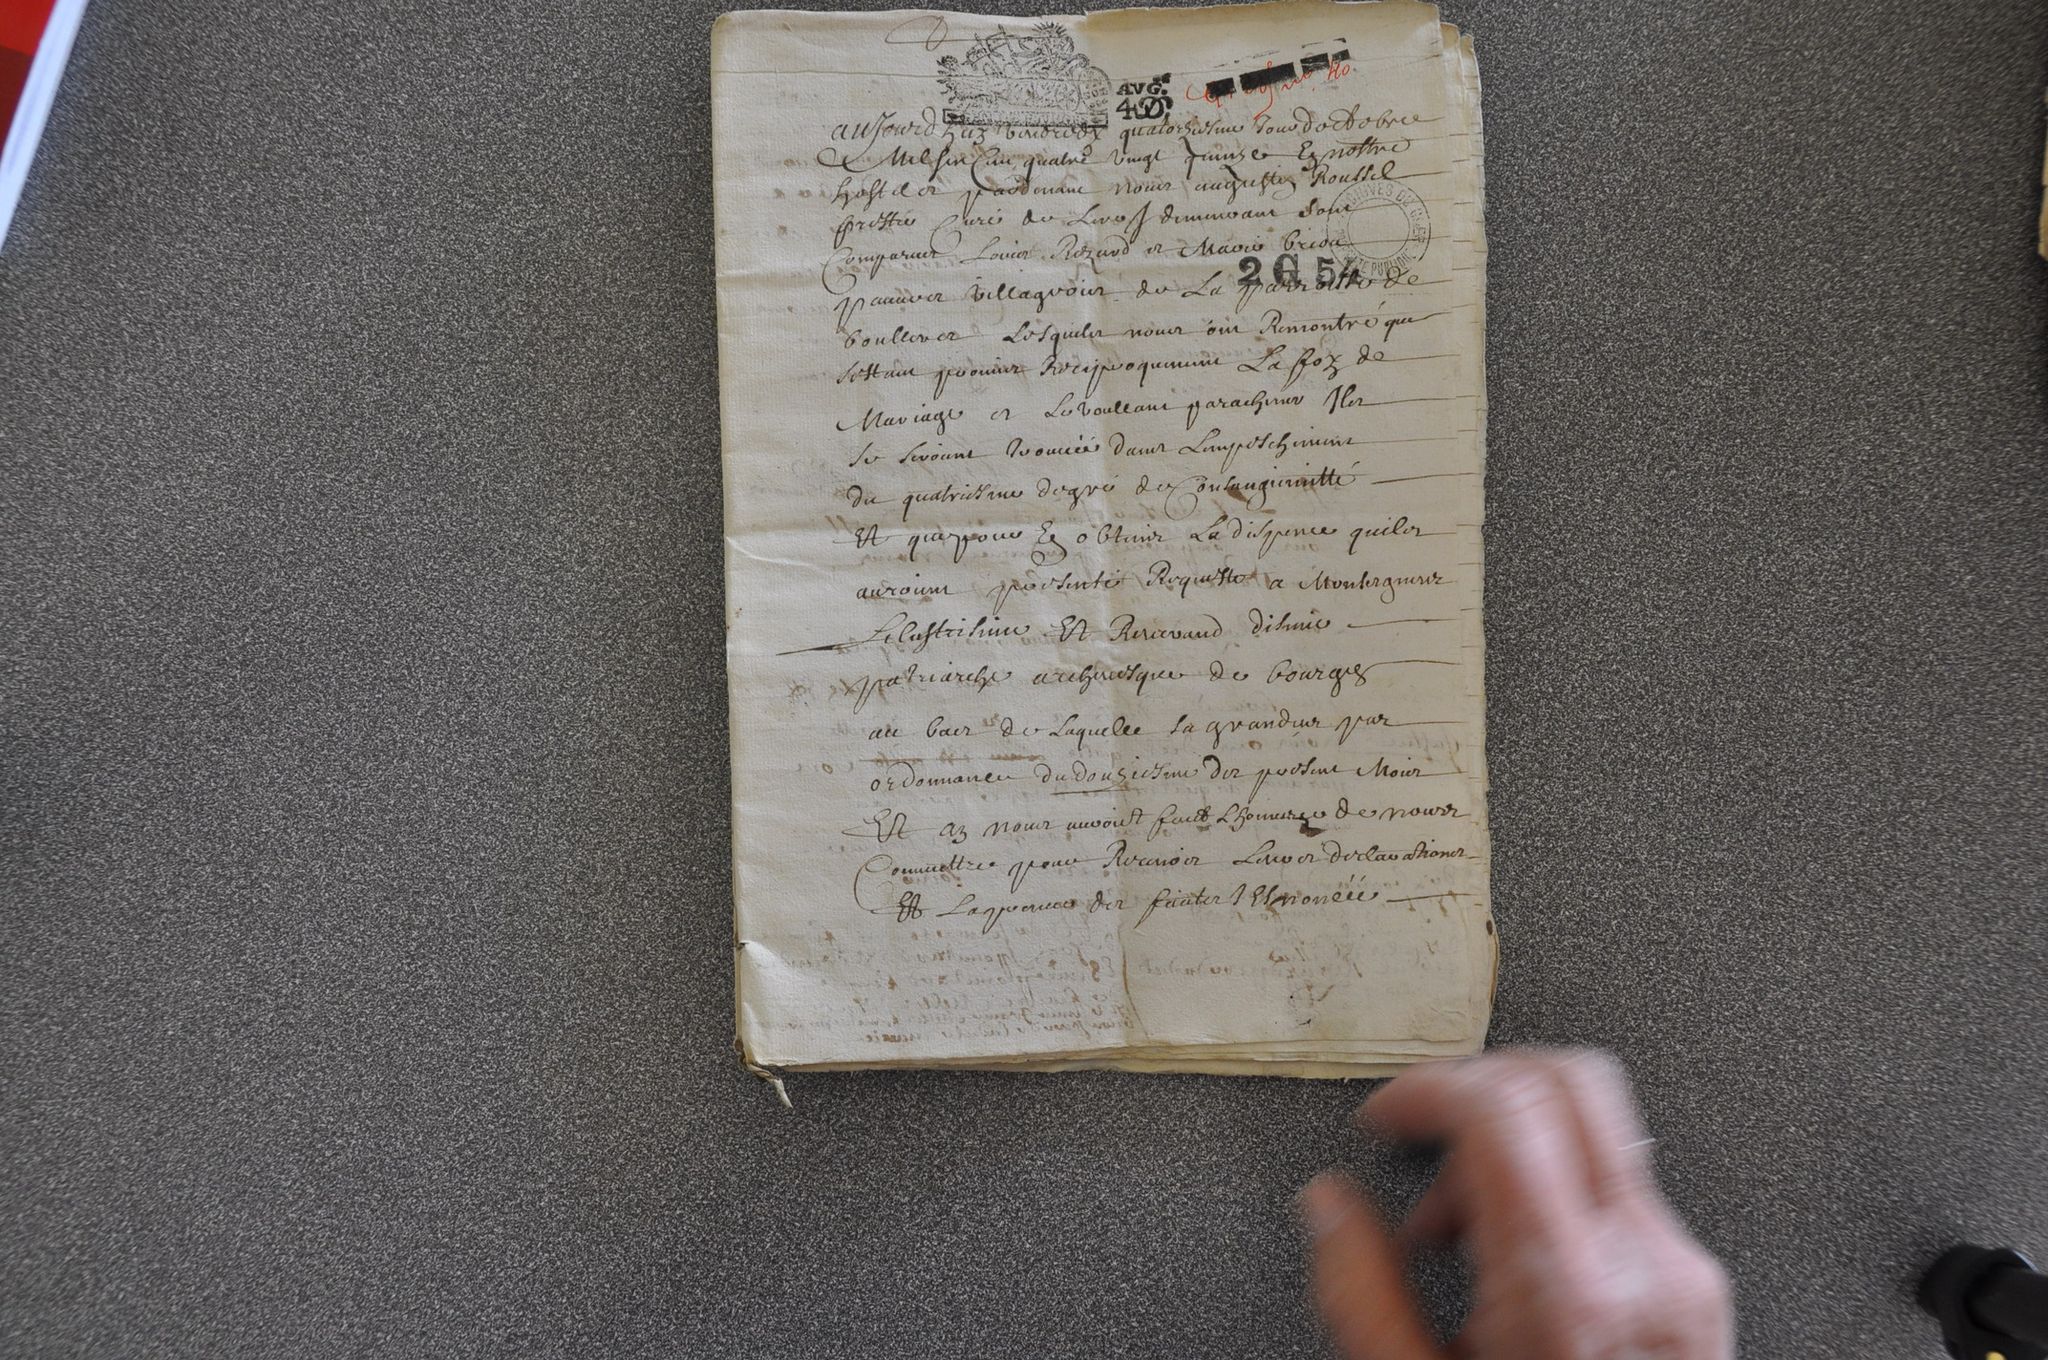 AVG.
4
aujourdhuy vendredy quatorziesme jour doctobre
Mil six Cen quatre vingt quinze En nostre
hostel et pardevant nous augustin Roussel
prestre Curé de Sont
Comparus Louis Rezard et Marie
pauvres villageois de La parroisse de
2 G 54
lesquels nous ont Remontré que
sestant promis Reciproquement La foy de
Mariage et Le voullant parachever Ils
se seroient trouvéé dans Lempeschement
du quatriesme degré de Consanguinitté
Et que pour En obtenir La dispence quils
auroient presenté Requeste a Monseigneur
Lelustrisime Et Reverand disime
patriarche archevesque de bourges
au bas de Laquelle sa grandeur par
ordonnance du douziesme des present Mois
Et an nous auroit faict Lhonneur de nous
Commettre pour Recevoir Leurs declarations
Et Lapreuve des faictes